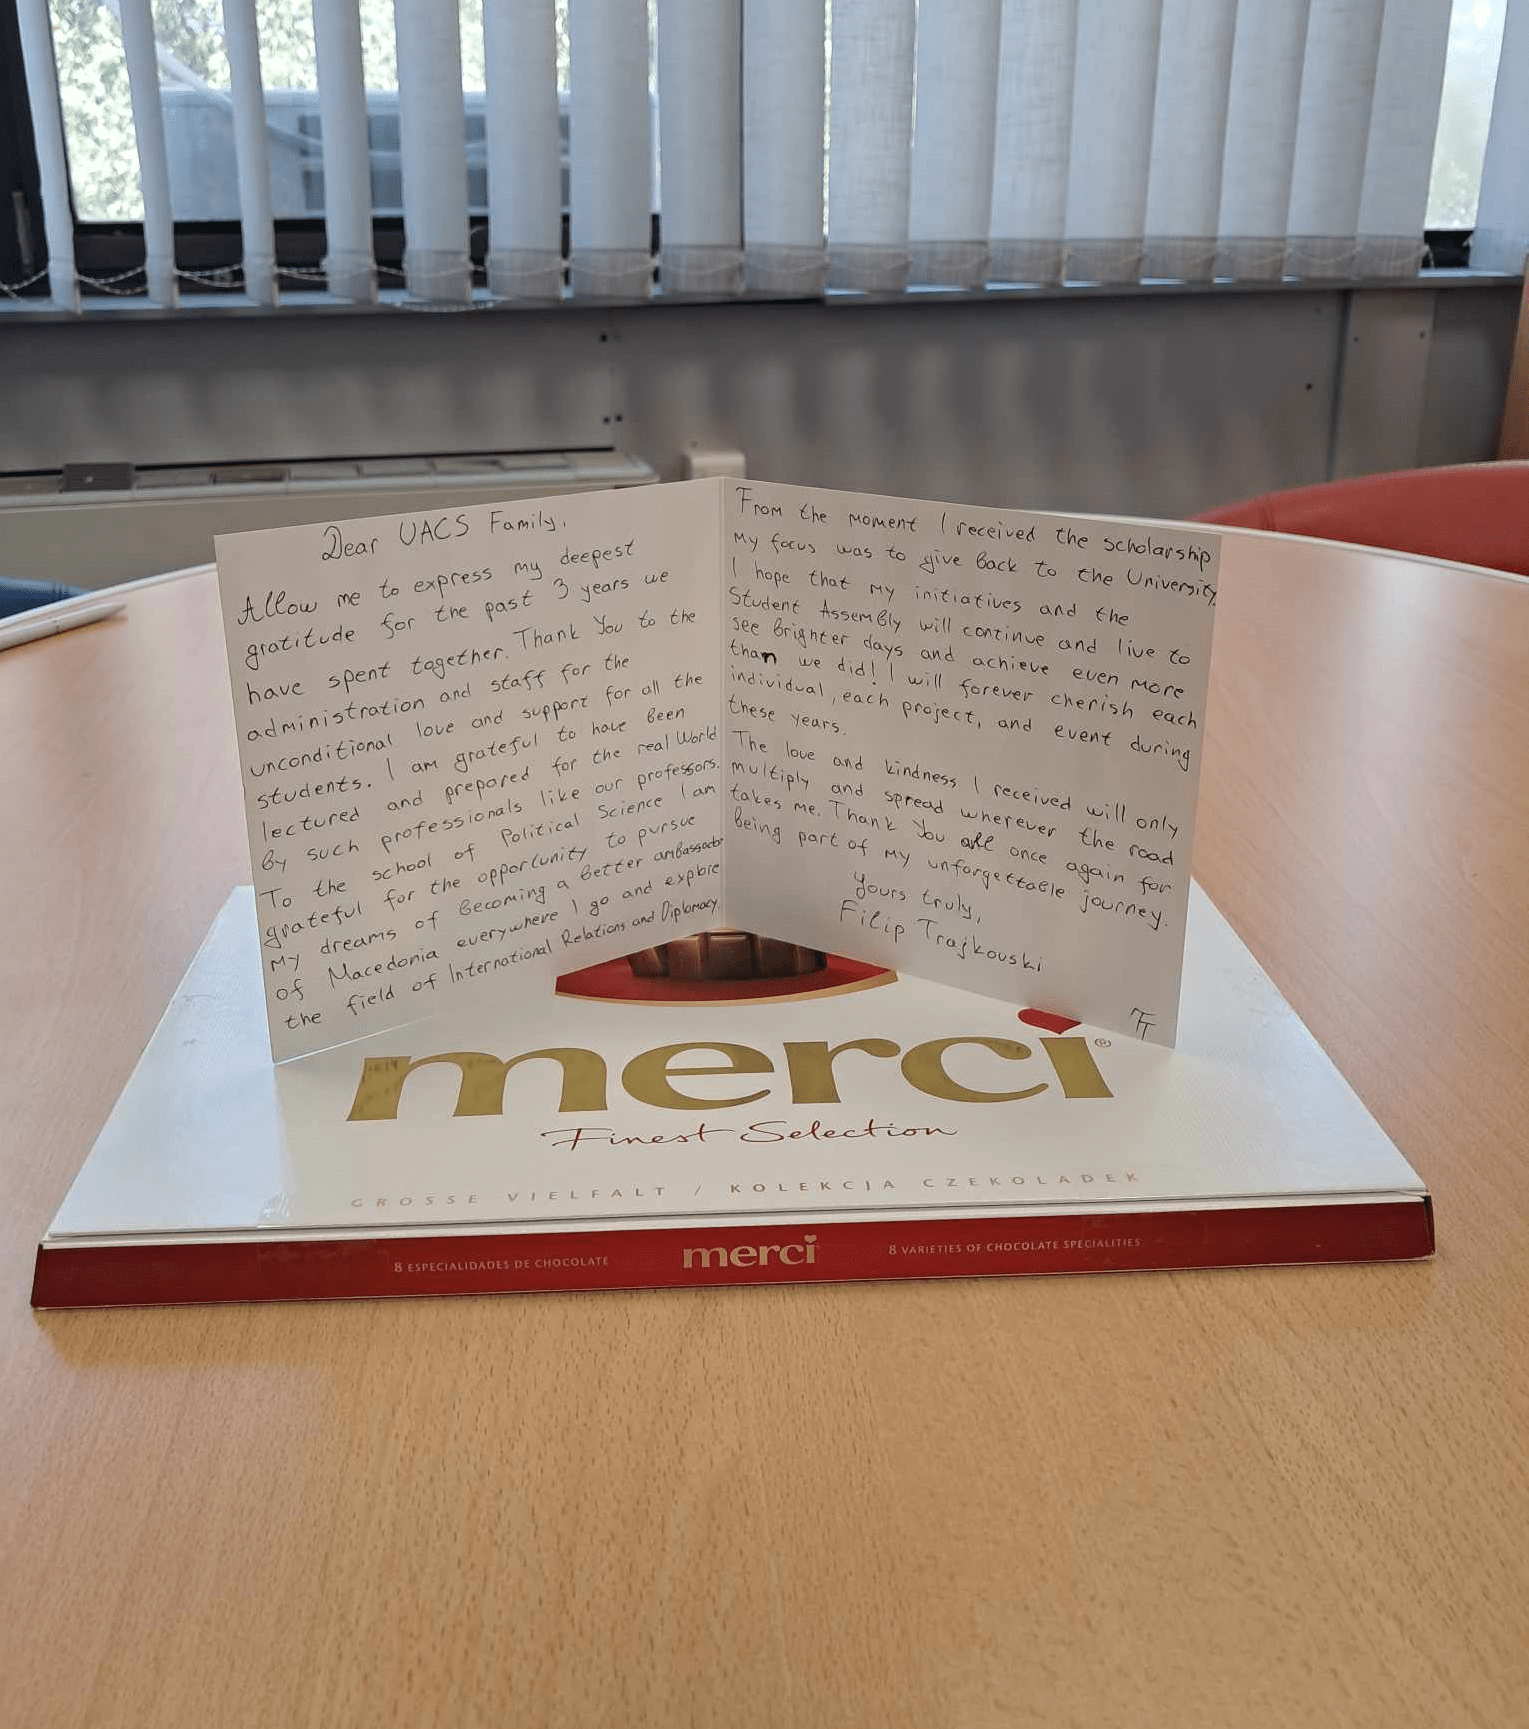 Dear UACS Family,
Allow me to express my deepest
gratitude for the past 3 years we
have spent together. Thank You to the
administration and staff for the
unconditional love and support for all the
students. I am grateful to have been
lectured and prepared for the real World
by such professionals like our professors.
To the school of Political Science I am
grateful for the opportunity to pursue
my dreams of becoming a better ambassador
of Macedonia everywhere I go and explore
the field of International Relations and Diplomacy
From the moment I received the scholarship
my focus was to give back to the University.
I hope that my initiatives and the
Student Assembly will continue and live to
see brighter days and achieve even more
than we did! I will forever cherish each
individual, each project, and event during
these years.
The love and kindness I received will only
multiply and spread wherever the road
takes me. Thank You all once again for
being part of my unforgettable journey.
Yours truly,
Filip Trajkovski
FT
merci®
Finest Selection
GROSSE VIELFALT / KOLEKCJA CZEKOLADEK
8 ESPECIALIDADES DE CHOCOLATE
merci
8 VARIETIES OF CHOCOLATE SPECIALITIES